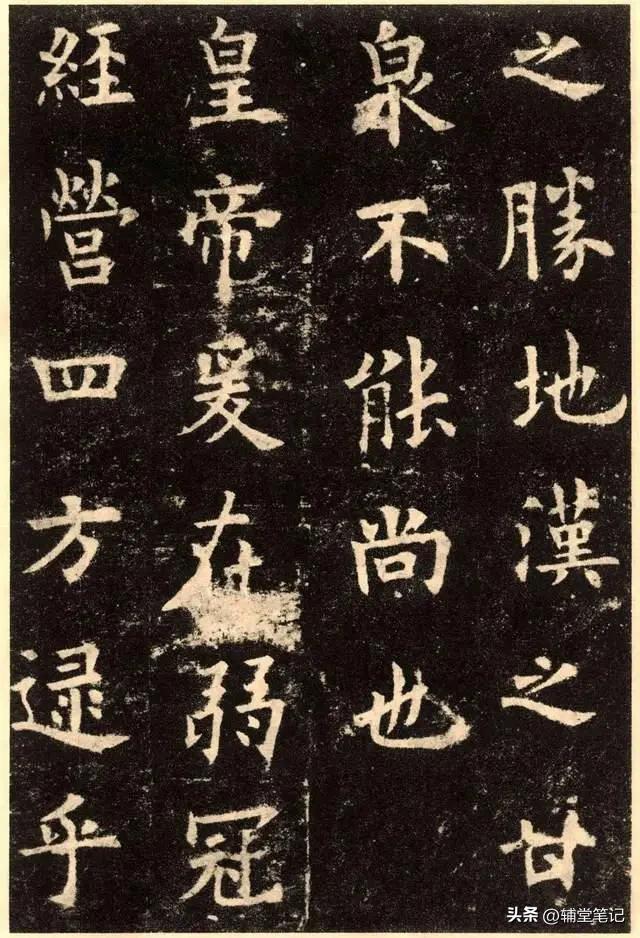 之勝地漢之甘
泉不能尚也
皇帝爰在弱冠
經營四方逯乎
头条 @辅堂笔记